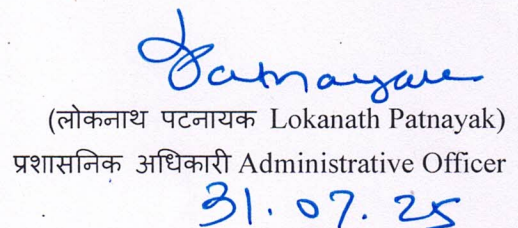 Patnayak
(लोकनाथ पटनायक Lokanath Patnayak)
प्रशासनिक अधिकारी Administrative Officer
31.07.25